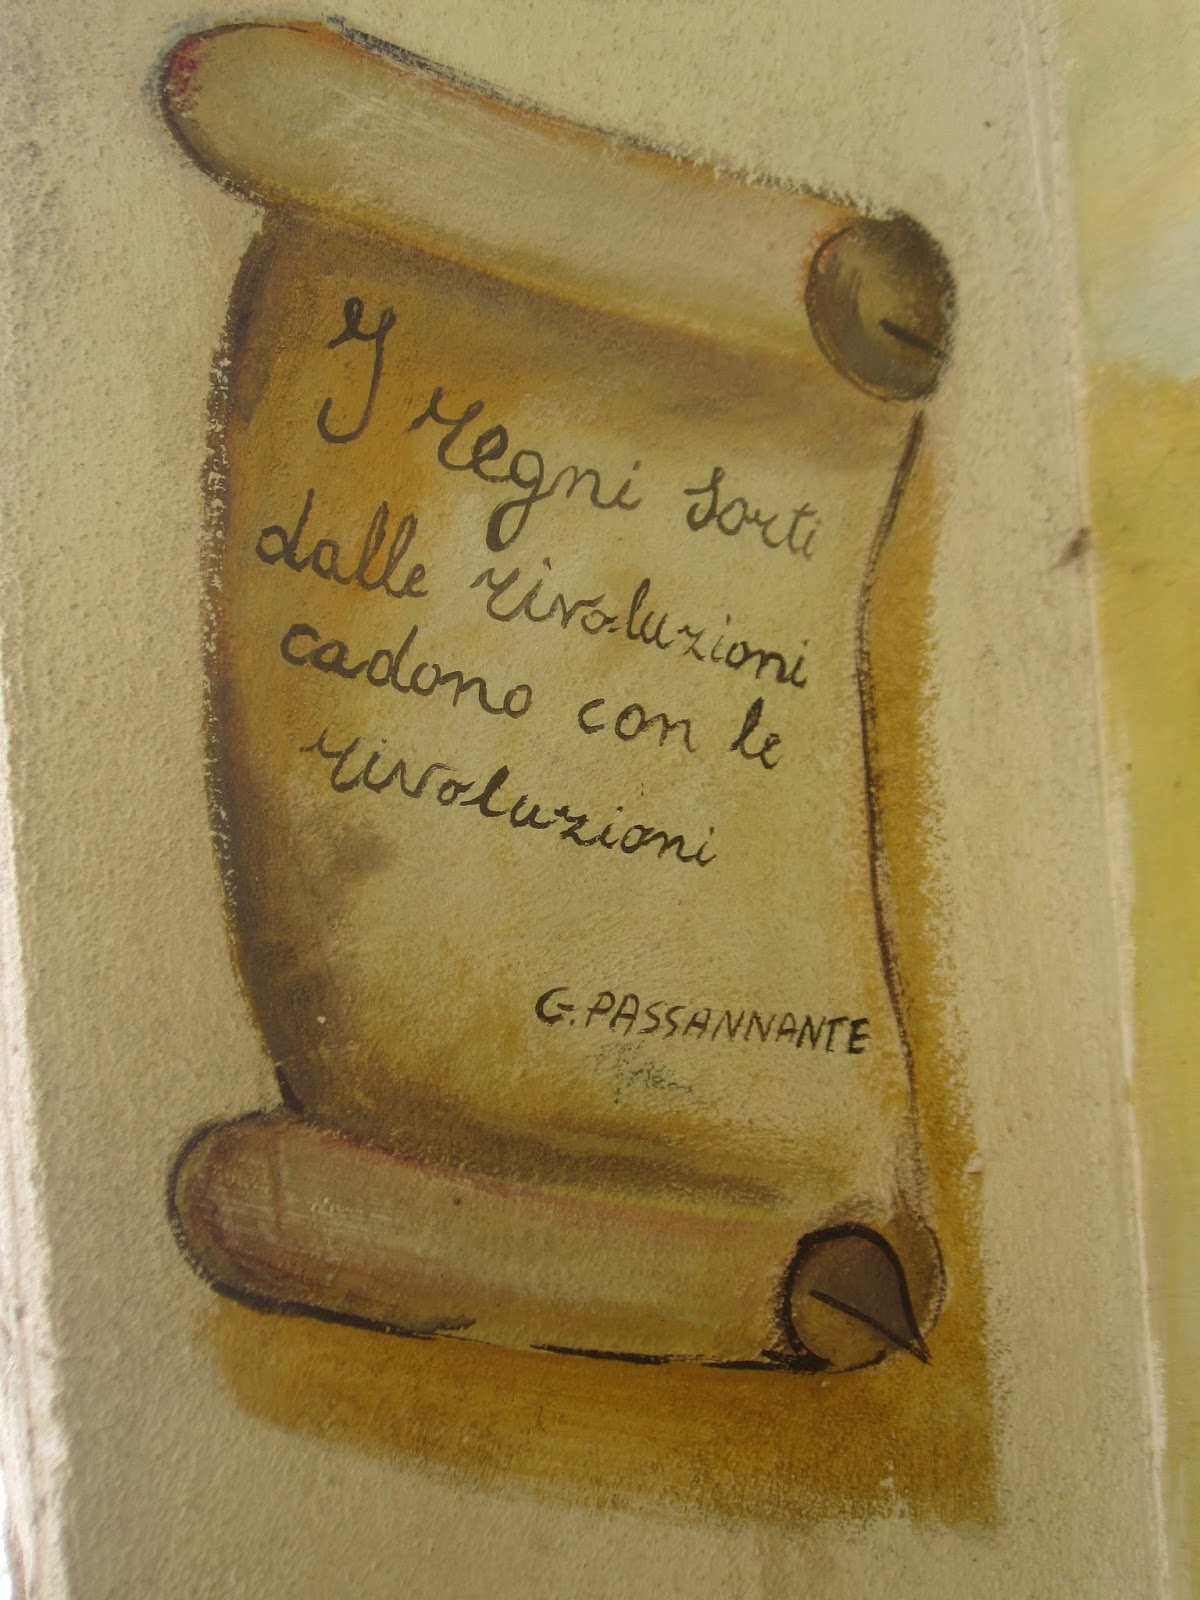 I regni sorti
dalle rivoluzioni
cadono con le
rivoluzioni
G. PASSANNANTE